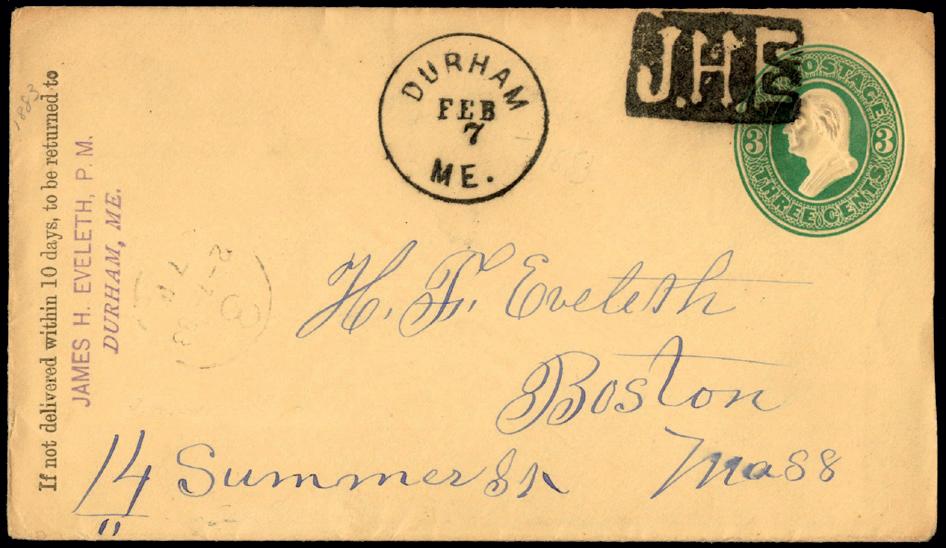 1883
If not delivered within 10 days, to be returned to
JAMES H. EVELETH, P. M.
DURHAM, ME.
DURHAM
FEB
7
ME.
J.H.E
POSTAGE
3 3
THREE CENTS
H. F. Eveleth
Boston
14 Summer St Mass